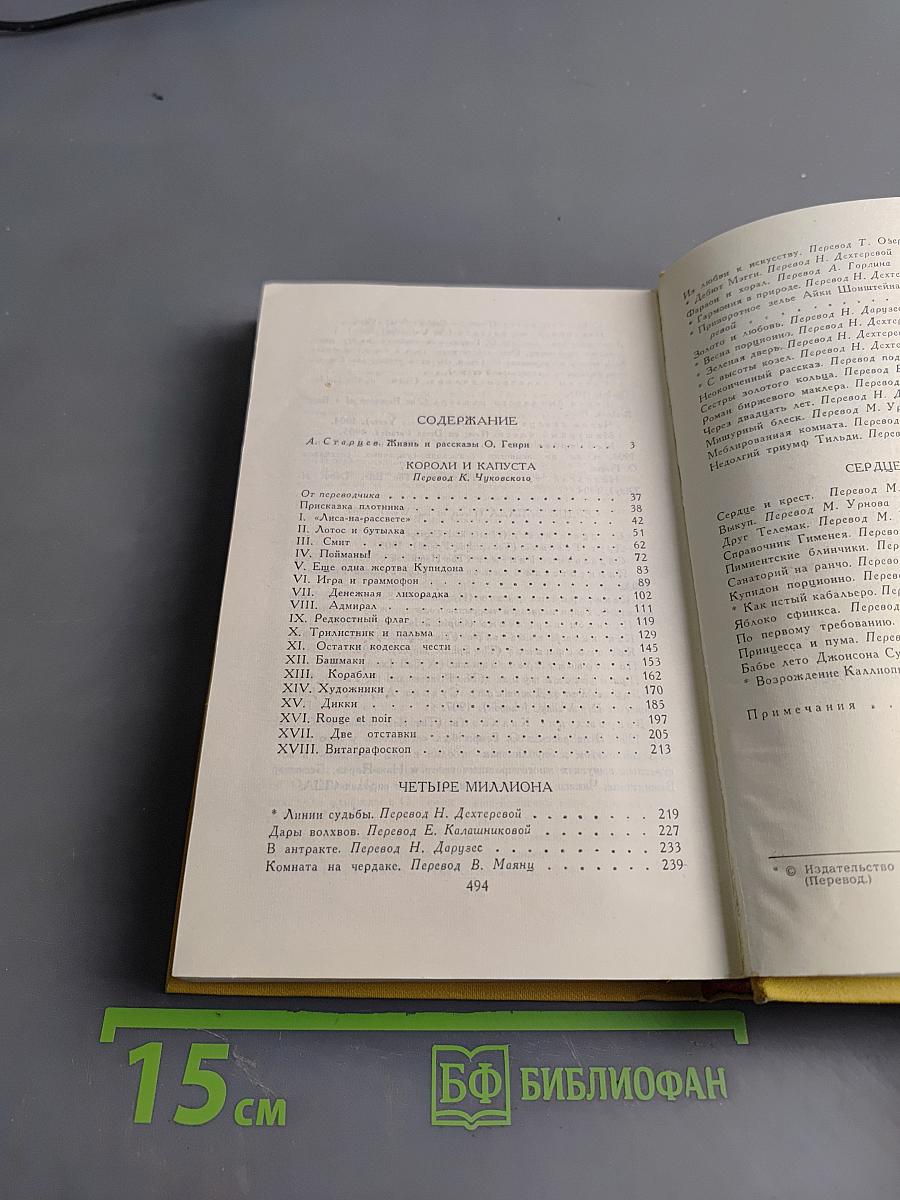 СОДЕРЖАНИЕ
А. Старцев. Жизнь и рассказы О. Генри . . . . . . . 3
КОРОЛИ И КАПУСТА
Перевод К. Чуковского
От переводчика . . . . . . . . . . 37
Присказка плотника . . . . . . . . . . 38
I. «Лиса-на-рассвете» . . . . . . . . . . 42
II. Лотос и бутылка . . . . . . . . . . 51
III. Смит . . . . . . . . . . 62
IV. Пойманы! . . . . . . . . . . 72
V. Еще одна жертва Купидона . . . . . . . . . . 83
VI. Игра и граммофон . . . . . . . . . . 89
VII. Денежная лихорадка . . . . . . . . . . 102
VIII. Адмирал . . . . . . . . . . 111
IX. Редкостный флаг . . . . . . . . . . 119
X. Трилистник и пальма . . . . . . . . . . 129
XI. Остатки кодекса чести . . . . . . . . . . 145
XII. Башмаки . . . . . . . . . . 153
XIII. Корабли . . . . . . . . . . 162
XIV. Художники . . . . . . . . . . 170
XV. Дикки . . . . . . . . . . 185
XVI. Rouge et noir . . . . . . . . . . 197
XVII. Две отставки . . . . . . . . . . 205
XVIII. Витаграфоскоп . . . . . . . . . . 213
ЧЕТЫРЕ МИЛЛИОНА
* Линии судьбы. Перевод Н. Дехтеревой . . . . . . . . 219
Дары волхвов. Перевод Е. Калашниковой . . . . . . . 227
В антракте. Перевод Н. Дарузес . . . . . . . . . . 233
Комната на чердаке. Перевод В. Маянц . . . . . . . 239
494
Из любви к искусству. Перевод Т. Озер
* Дебют Мэгги. Перевод Н. Дехтеревой
Фараон и хорал. Перевод А. Горлина
* Гармония в природе. Перевод Н. Дехте
* Приворотное зелье Айки Шоэнштейна
ревой . . . . . . .
Золото и любовь. Перевод Н. Дарузес
* Весна порционно. Перевод Н. Дехте
* Зеленая дверь. Перевод Н. Дехтере
* С высоты козел. Перевод Н. Дехте
Неоконченный рассказ. Перевод под
Сестры золотого кольца. Перевод
Роман биржевого маклера. Перевод
Через двадцать лет. Перевод Н. Д
Мишурный блеск. Перевод М. Ур
Меблированная комната. Перевод
Недолгий триумф Тильди. Перев
СЕРДЦЕ
Сердце и крест. Перевод М.
Выкуп. Перевод М. Урнова
Друг Телемак. Перевод М.
Справочник Гименея. Перево
Пимиентские блинчики. Пер
Санаторий на ранчо. Перево
Купидон порционно. Перево
* Как истый кабальеро. Пер
Яблоко сфинкса. Перевод
По первому требованию.
Принцесса и пума. Перев
Бабье лето Джонсона Су
* Возрождение Каллиоп
Примечания . .
* © Издательство
(Перевод.)
15 см
БФ БИБЛИОФАН